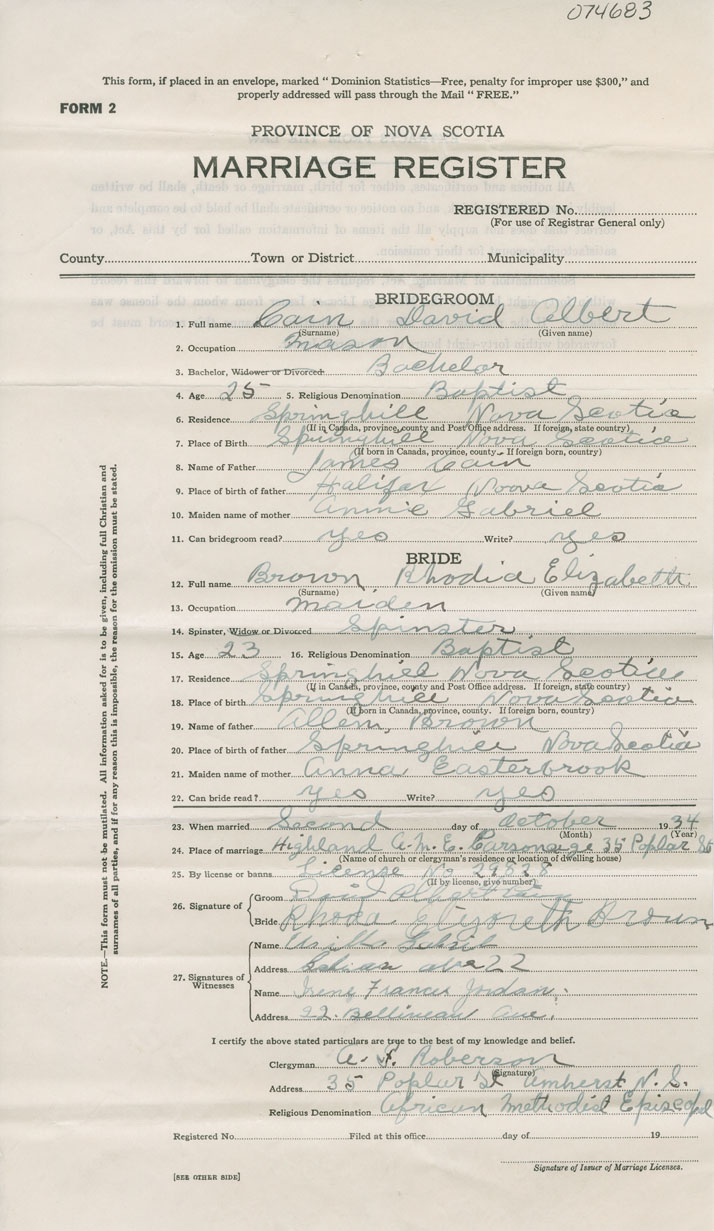 074683
This form, if placed in an envelope, marked "Dominion Statistics—Free, penalty for improper use $300," and
properly addressed will pass through the Mail "FREE."
FORM 2
PROVINCE OF NOVA SCOTIA
MARRIAGE REGISTER
REGISTERED No.
(For use of Registrar General only)
County Town or District Municipality
BRIDEGROOM
1. Full name Cain David Albert
(Surname) (Given name)
2. Occupation Mason
3. Bachelor, Widower or Divorced Bachelor
4. Age 25 5. Religious Denomination Baptist
6. Residence Springhill Nova Scotia
(If in Canada, province, county and Post Office address. If foreign, state country)
7. Place of Birth Springhill Nova Scotia
(If born in Canada, province, county. If foreign born, country)
8. Name of Father James Cain
9. Place of birth of father Halifax Nova Scotia
10. Maiden name of mother Annie Gabriel
11. Can bridegroom read? yes Write? yes
BRIDE
12. Full name Brown Rhodia Elizabeth
(Surname) (Given name)
13. Occupation maiden
14. Spinster, Widow or Divorced Spinster
15. Age 23 16. Religious Denomination Baptist
17. Residence Springhill Nova Scotia
(If in Canada, province, county and Post Office address. If foreign, state country)
18. Place of birth Springhill Nova Scotia
(If born in Canada, province, county. If foreign born, country)
19. Name of father Allen Brown
20. Place of birth of father Springhill Nova Scotia
21. Maiden name of mother Anna Easterbrook
22. Can bride read? yes Write? yes
23. When married Second day of October 1934
(Month) (Year)
24. Place of marriage Highland A.M.E. Parsonage 35 Poplar St
(Name of church or clergyman's residence or location of dwelling house)
25. By license or banns License No 29828
(If by license, give number)
26. Signature of
Groom David Albert Cain
Bride Rhoda Elizabeth Brown
27. Signatures of
Witnesses
Name
Address 22
Name Irene Frances Jordan
Address 22 Ave.
I certify the above stated particulars are true to the best of my knowledge and belief.
Clergyman A. F. Roberson
(Signature)
Address 35 Poplar St Amherst N.S.
Religious Denomination African Methodist Episcopal
Registered No. Filed at this office day of 19
Signature of Issuer of Marriage Licenses.
[SEE OTHER SIDE]
NOTE.—This form must not be mutilated. All information asked for is to be given, including full Christian and
surnames of all parties, and if for any reason this is impossible, the reason for the omission must be stated.